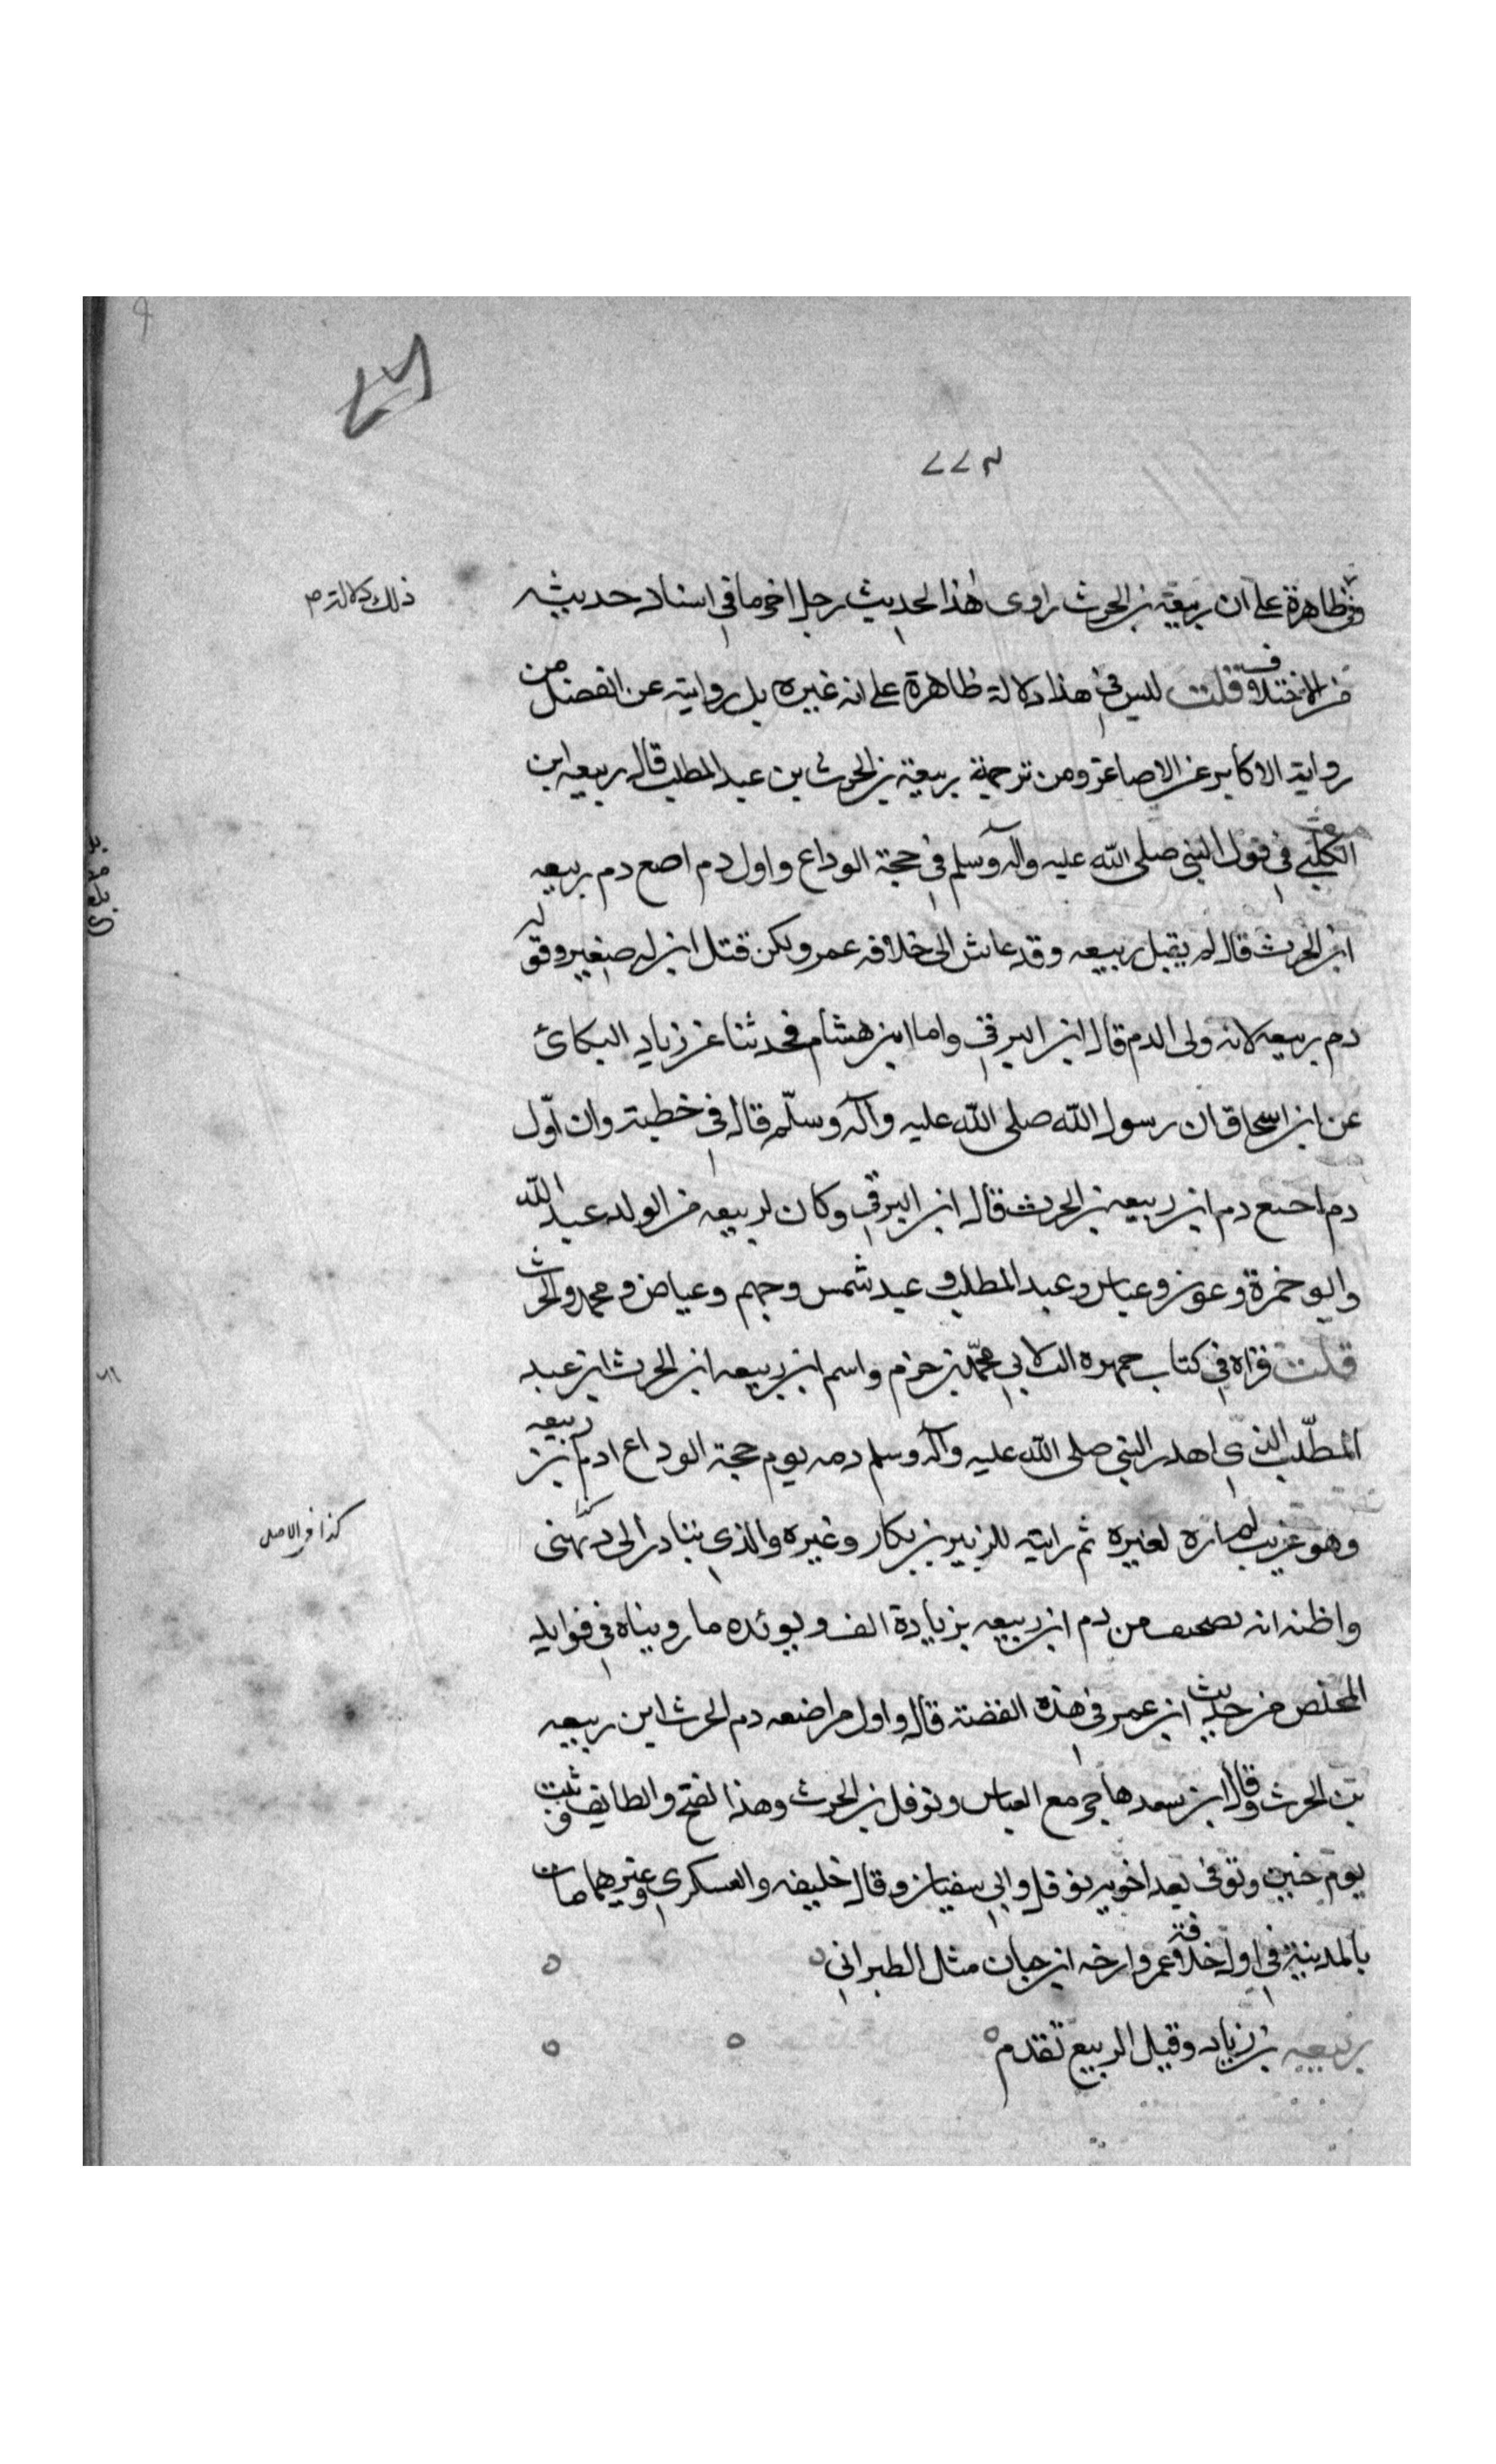 ٢٧٧
ظاهرة على ان ربيعة بن الحرث راوى هذا الحديث رجل اخر ما في اسناد حديثه
ذلك دلالة صح
من الاختلاف قلت ليس في هذا دلالة ظاهرة على انه غيره بل روايته عن الفضل من
رواية الاكابر عن الاصاغر ومن ترجمة ربيعة بن الحرث بن عبد المطلب قال ربيعه ابن
الكلبي في قول النبي صلى الله عليه وآله وسلم في حجة الوداع واول دم اضع دم ربيعه
ابن الحرث قال لم يقتل ربيعه وقد عاش الى خلافه عمر ولكن قتل ابن له صغير وقوله
دم ربيعه لانه ولى الدم قال ابن البرقي واما ابن هشام فحدثنا عن زياد البكائ
عن ابن اسحاق ان رسول الله صلى الله عليه وآله وسلّم قال في خطبته وان اوّل
دم اضع دم ابن ربيعه بن الحرث قال ابن البرقي وكان لربيعه من الولد عبد الله
وابو حمزة وعون وعباس وعبد المطلب وعبد شمس وجهم وعياض ومحمد والحرث
قلت قراه في كتاب جمهره لابي محمّد بن حزم واسم ابن ربيعه ابن الحرث ابن عبد
المطّلب الذي اهدر النبي صلى الله عليه وآله وسلم دمه يوم حجة الوداع ادم بن ربيعه
وهو غريب لم اره لغيره ثم رايته للزبير بن بكار وغيره والذي يتبادر الى ذهنى
كذا في الاصل
واظنه انه تصحيف من دم ابن ربيعه بزيادة الف ويوئده ما رويناه في فوايد
المخلص من حديث ابن عمر في هذه القصة قال واول دم اضعه دم الحرث ابن ربيعه
بن الحرث وقال ابن سعد هاجر مع العباس ونوفل بن الحرث وهذا لفتح والطايف وثبت
يوم حنين وتوفى بعد اخويه نوفل وابي سفيان وقال خليفه والعسكرى وغيرهما مات
بالمدينة في اول خلافة عمر وارخه ابن حبان مثل الطبراني
ربيعه بن زياد وقيل الربيع تقدم